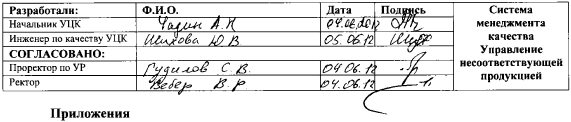 Разработали: Ф.И.О. Дата Подпись Система менеджмента качества Управление несоответствующей продукцией
Начальник УЦК А. Н
Инженер по качеству УЦК Шихова Ю В 05.06.12
СОГЛАСОВАНО:
Проректор по УР Гудилов С. В. 04.06.12
Ректор Вебер В. Р 04.06.12
Приложения